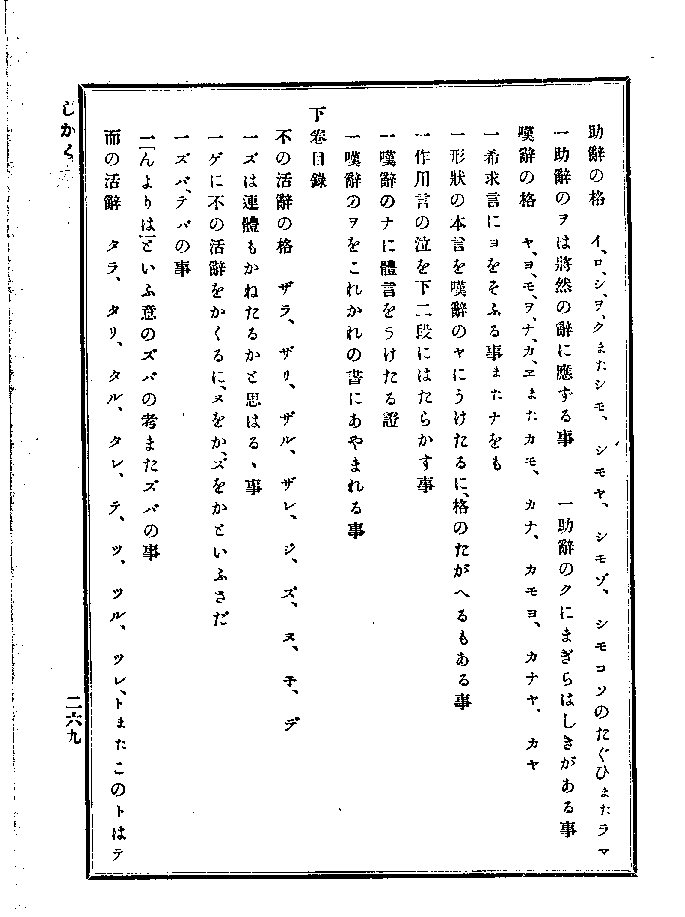 助辭の格　イ、ロ、シ、ヲ、クまたシモ、シモヤ、シモゾ、シモコソのたぐひまたラマ
一助辭のヲは將然の辭に應ずる事　一助辭のクにまぎらはしきがある事
嘆辭の格　ヤ、ヨ、モ、ヲ、ナ、カ、ヱまたカモ、カナ、カモヨ、カナヤ、カヤ
一希求言にヨをそふる事またナをも
一形狀の本言を嘆辭のヤにうけたるに、格のたがへるもある事
一作用言の泣を下二段にはたらかす事
一嘆辭のナに體言をうけたる證
一嘆辭のヲをこれかれの書にあやまれる事
下卷目錄
不の活辭の格　ザラ、ザリ、ザル、ザレ、ジ、ズ、ヌ、子、デ
一ズは連體もかねたるかと思はるゝ事
一ゲに不の活辭をかくるに、ヌをか、ズをかといふさだ
一ズバ、テバの事
一「んよりは」といふ意のズバの考またズバの事
而の活辭　タラ、タリ、タル、タレ、テ、ツ、ツル、ツレ、トまたこのトはテ
じかく
二六九